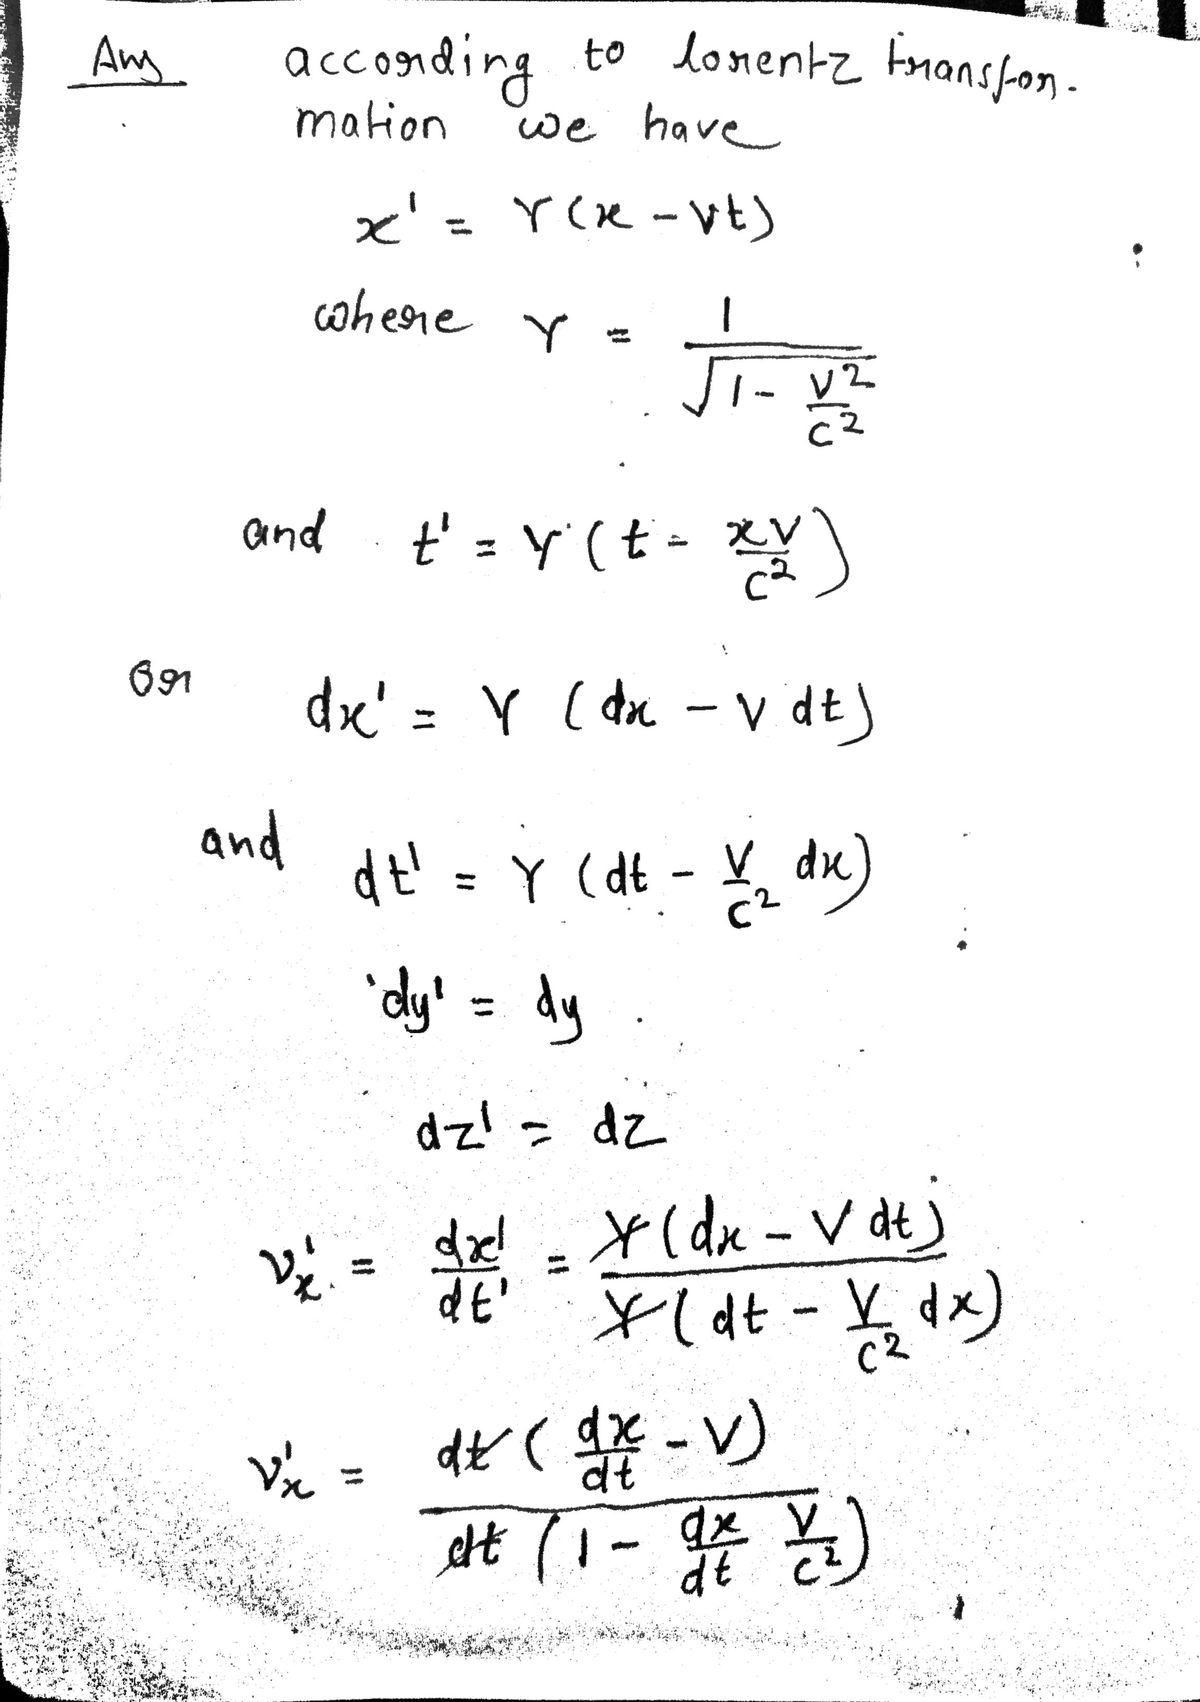 Ans according to lorentz transfor-
mation we have
x' = γ(x - vt)
where γ = 1 / √(1 - v²/c²)
and t' = γ(t - xv/c²)
or dx' = γ (dx - v dt)
and dt' = γ (dt - v/c² dx)
dy' = dy
dz' = dz
v'x = dx'/dt' = γ(dx - v dt) / γ(dt - v/c² dx)
v'x = dt (dx/dt - v) / dt (1 - dx/dt v/c²)